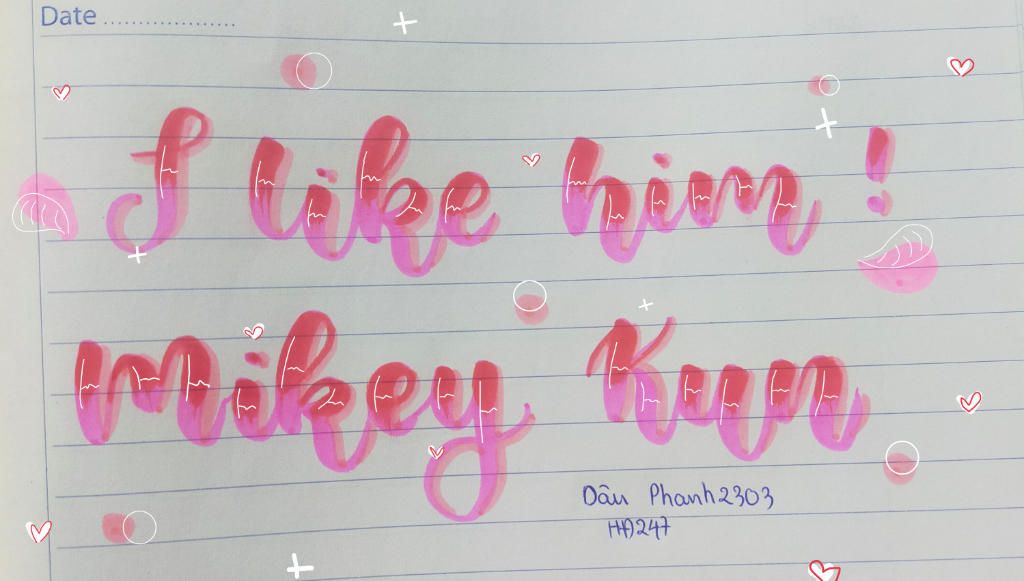 Date ..................
I like him !
Mikey Kun
Dâu Phanh2303
HĐ247